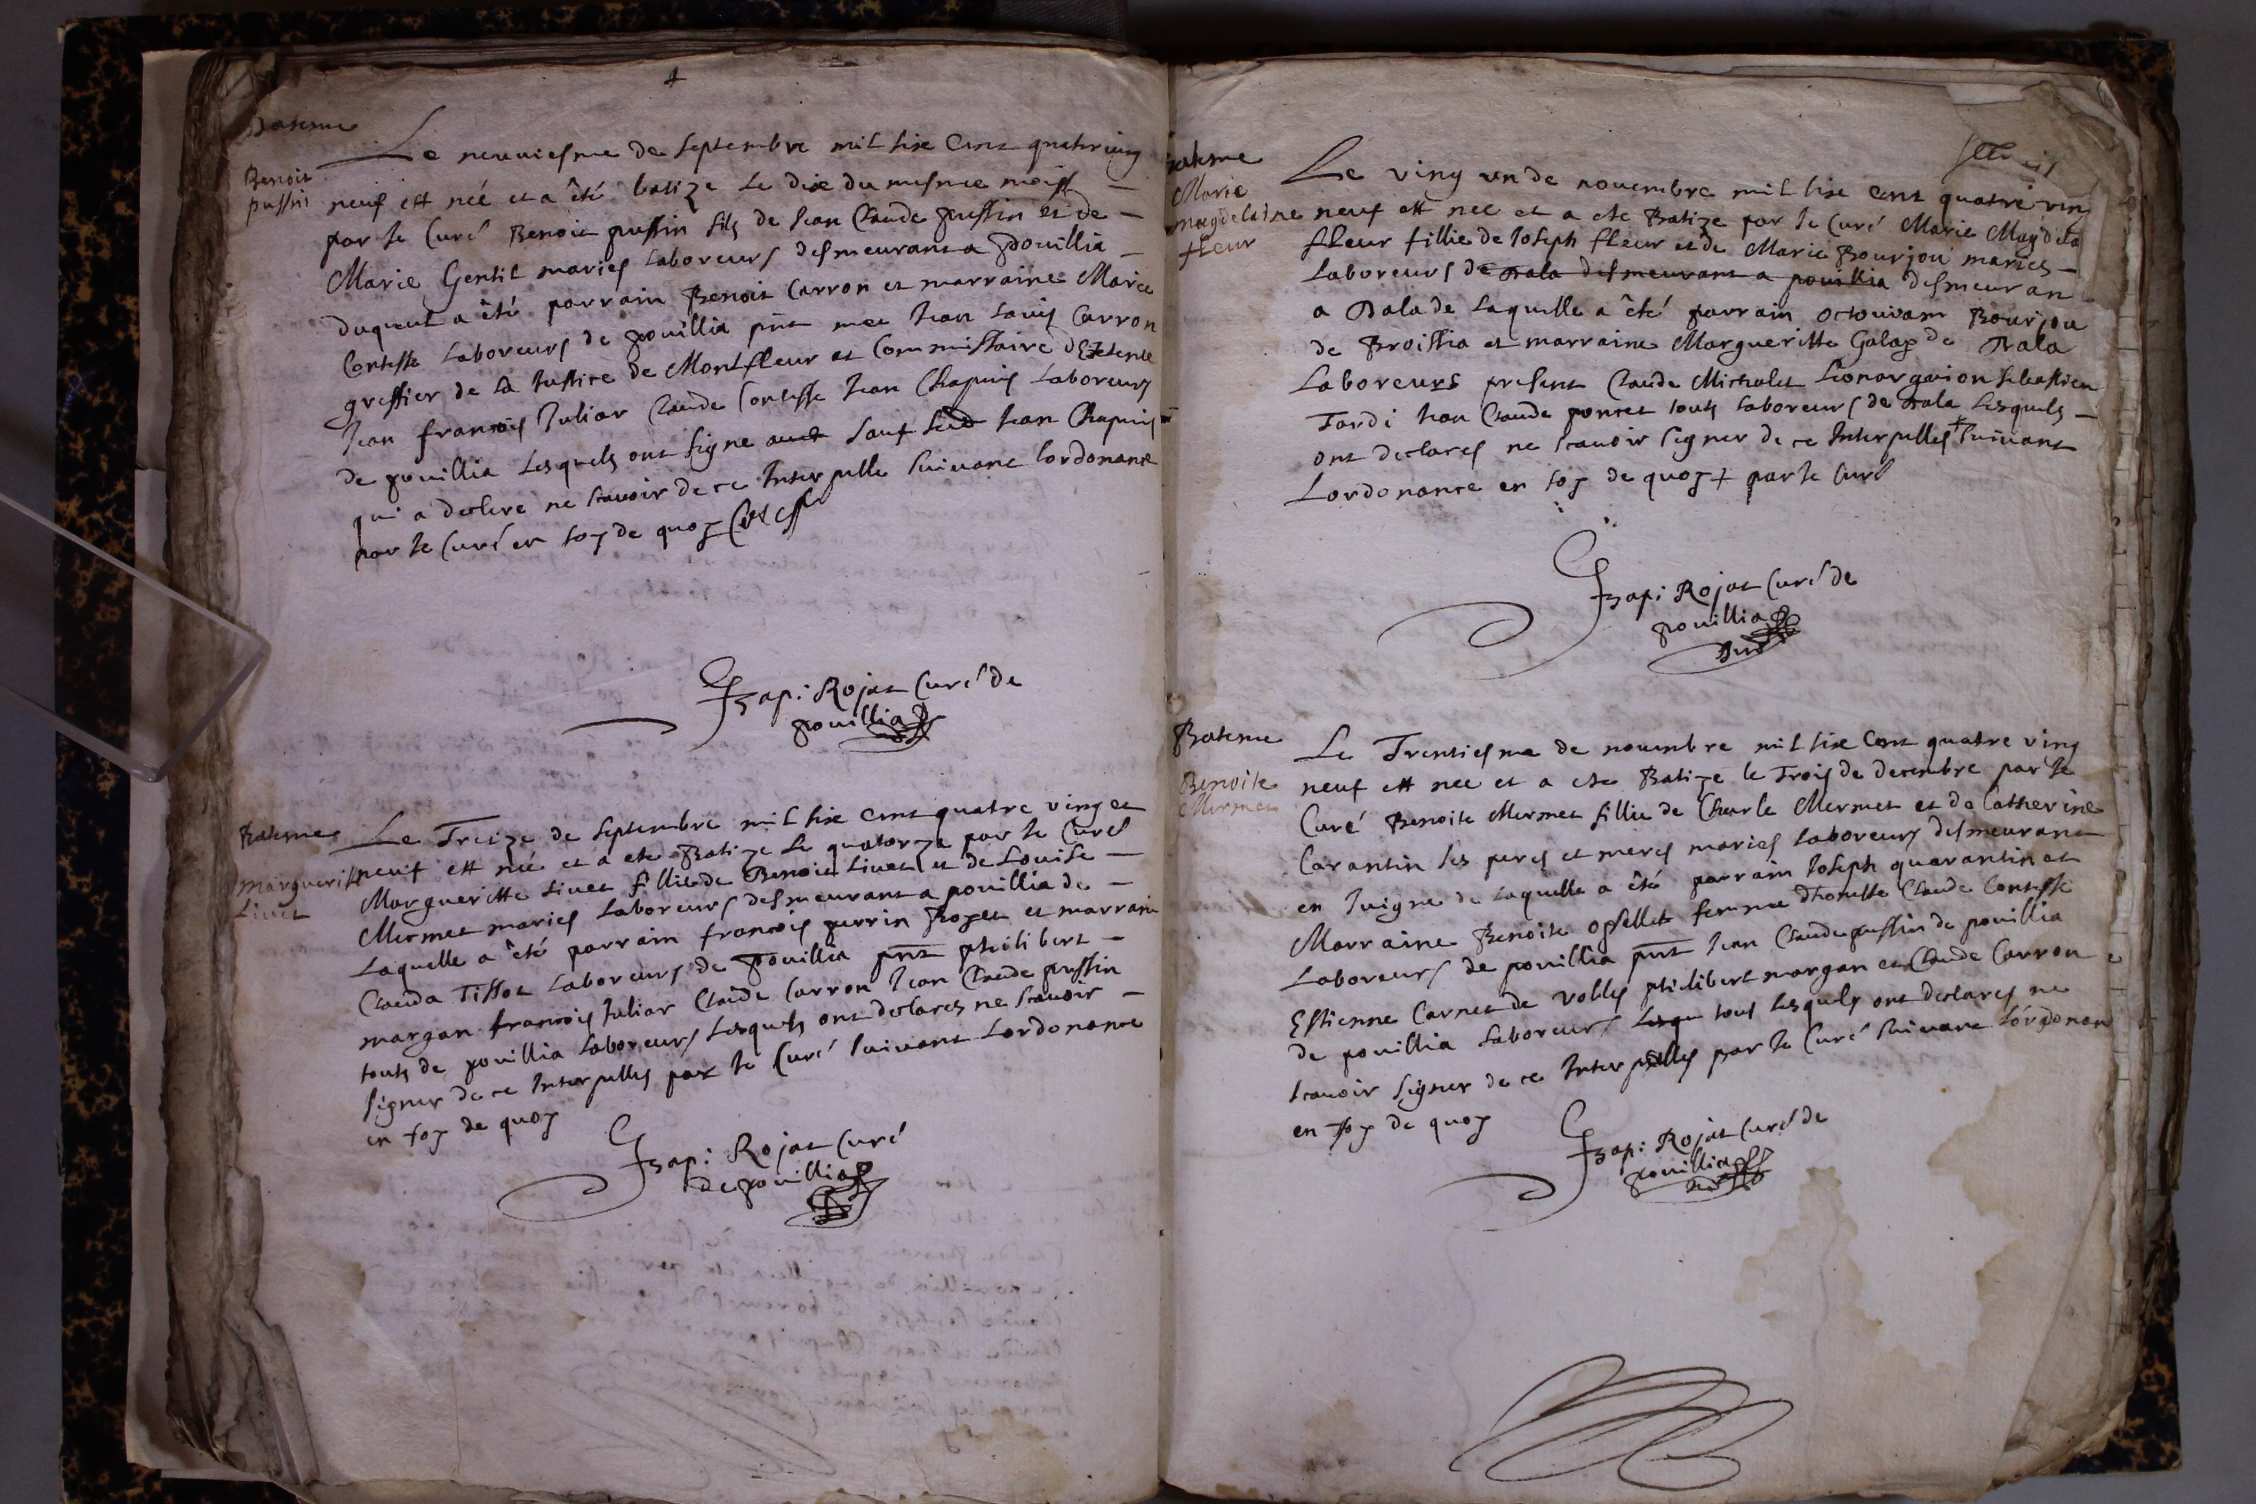 Bateme
Benoit
pussin
Le neuviesme de septembre mil sixe cent quatreving
neuf est néé et a êté batize le dixe du mesme mois
par le Curé Benoit pussin fils de Jean Claude pussin et de
Marie Gentil maries Laboreurs desmeurant a pouillia
duqueul a êté parrain Benoit Carron et marraine Marie
Contesse Laboreurs de pouillia pnt mee Jean Louis Carron
greffier de la Justice de Montfleur et Commissaire
Jean francois Juliar Claude Contesse Jean Chapuis Laboreurs
de pouillia Lesquels ont signe sauf Jean Chapuis
qui a declere ne scavoir de ce Interpelle suivant lordonance
par le Curé en foy de quoy
Rojat Curé de
pouillia
Bateme
Margueritte
Livet
Le Treize de septembre mil sixe cent quatre ving et
neuf est née et a ete Batize le quatorze par le Curé
Margueritte Livet fillie de Benoit Livet et de Louise
Mermet maries Laboreurs desmeurant a pouillia de
Laquelle a êté parrain francois perrin Royet et marraine
Clauda Tissot Laboreurs de pouillia pnt philibert
margan francois Juliar Claude Carron Jean Claude pussin
touts de pouillia Laboreurs Lesquels ont declares ne scavoir
signer de ce Interpelles par le Curé suivant Lordonance
en foy de quoy
Rojat Curé
de pouillia
Bateme
Marie
magdelaine
fleur
Le ving un de novembre mil sixe cent quatre ving
neuf est nee et a ete Batize par le Curé Marie Magdela
fleur fillie de Joseph fleur et de Marie Bourjou maries
Laboreurs de Dala desmeurant a pouillia desmeuran
a Dala de Laquelle a êté parrain Bourjou
de Broissia et marraine Margueritte Galap de Dala
Laboreurs present Claude Michalet sebastien
Tardi Jean Claude poncet touts Laboreurs de Dala Lesquels
ont declares ne scavoir signer de ce Interpelles + suivant
Lordonance en foy de quoy + par le Curé
Rojat Curé de
pouillia
Bateme
Benoite
Mermet
Le Trentiesme de novembre mil sixe cent quatre ving
neuf est nee et a ete Batize le Trois de decembre par le
Curé Benoite Mermet fillie de Charle Mermet et de Catherine
Carantin les peres et meres maries Laboreurs desmeurant
en Juigne de Laquelle a êté parrain Joseph quarantin et
Marraine Benoite femme Claude Contesse
Laboreurs de pouillia pnt Jean Claude pussin de pouillia
Estienne Carnet de Volles philibert margan et Claude Carron
de pouillia Laboreurs Lesqu tous Lesquels ont declares ne
scavoir signer de ce Interpelles par le Curé suivant Lordonan
en foy de quoy
Rojat Curé de
pouillia